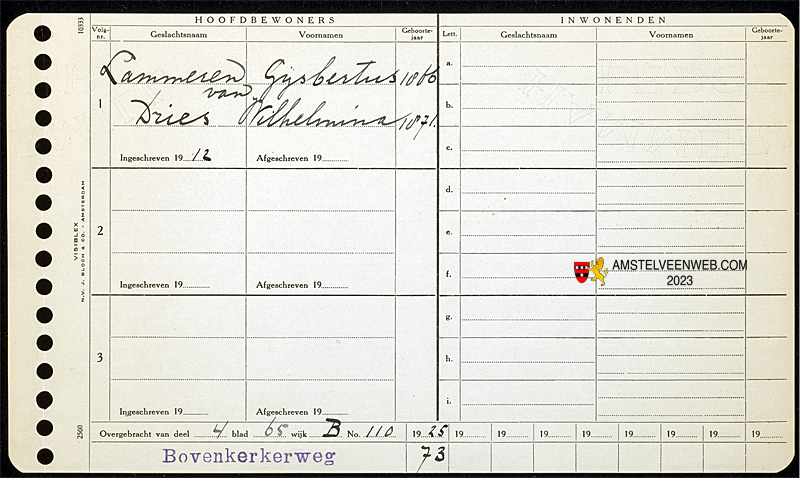 HOOFDBEWONERS
INWONENDEN
10333
Volg-nr. Geslachtsnaam Voornamen Geboorte-jaar
Lett. Geslachtsnaam Voornamen Geboorte-jaar
Lammeren Gijsbertus 1866
van
1 Dries Wilhelmina 1871.
Ingeschreven 19 12 Afgeschreven 19
2
Ingeschreven 19 Afgeschreven 19
3
Ingeschreven 19 Afgeschreven 19
a.
b.
c.
d.
e.
f.
g.
h.
i.
AMSTELVEENWEB.COM
2023
VISIBLEX
N.V. J. BLOCH & CO. - AMSTERDAM
2500
Overgebracht van deel 4 blad 65 wijk B No. 110 19 25 19 19 19 19 19 19 19 19
Bovenkerkerweg 73